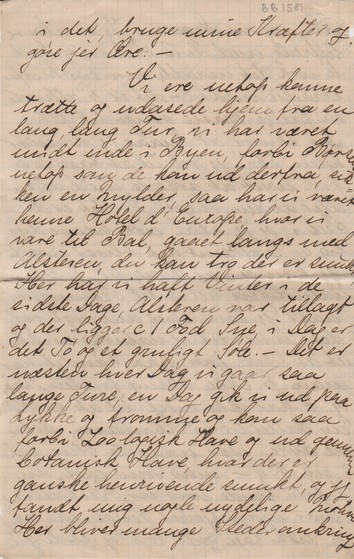 BB 1581
i det, bruge mine Kræfter og
gøre jer Ære. —
Vi ere netop komne
trætte og udasede hjem fra en
lang, lang Tur, vi har været
midt inde i Byen, forbi Børsen
netop som de kom ud derfra,
ken en mylder, saa har vi været
henne Hotel d'Europe, hvor vi
vare til Bal, gaaet langs med
Alsteren, du kan tro der er smukt
Her har vi haft Vinter i de
sidste Dage, Alsteren var tillagt
og der ligger 1 Fod Sne, i Dag er
det Tø og et grufligt Søle. — Det er
næsten hver Dag vi gaar saa
lange Ture, en Dag gik vi ud paa
Lykke og Fromme og kom saa
forbi Zoologisk Have og ud gennem
botanisk Have, hvor der er
ganske henrivende smukt, og jeg
fandt mig nogle nydelige
Her bliver mange Steder omkring